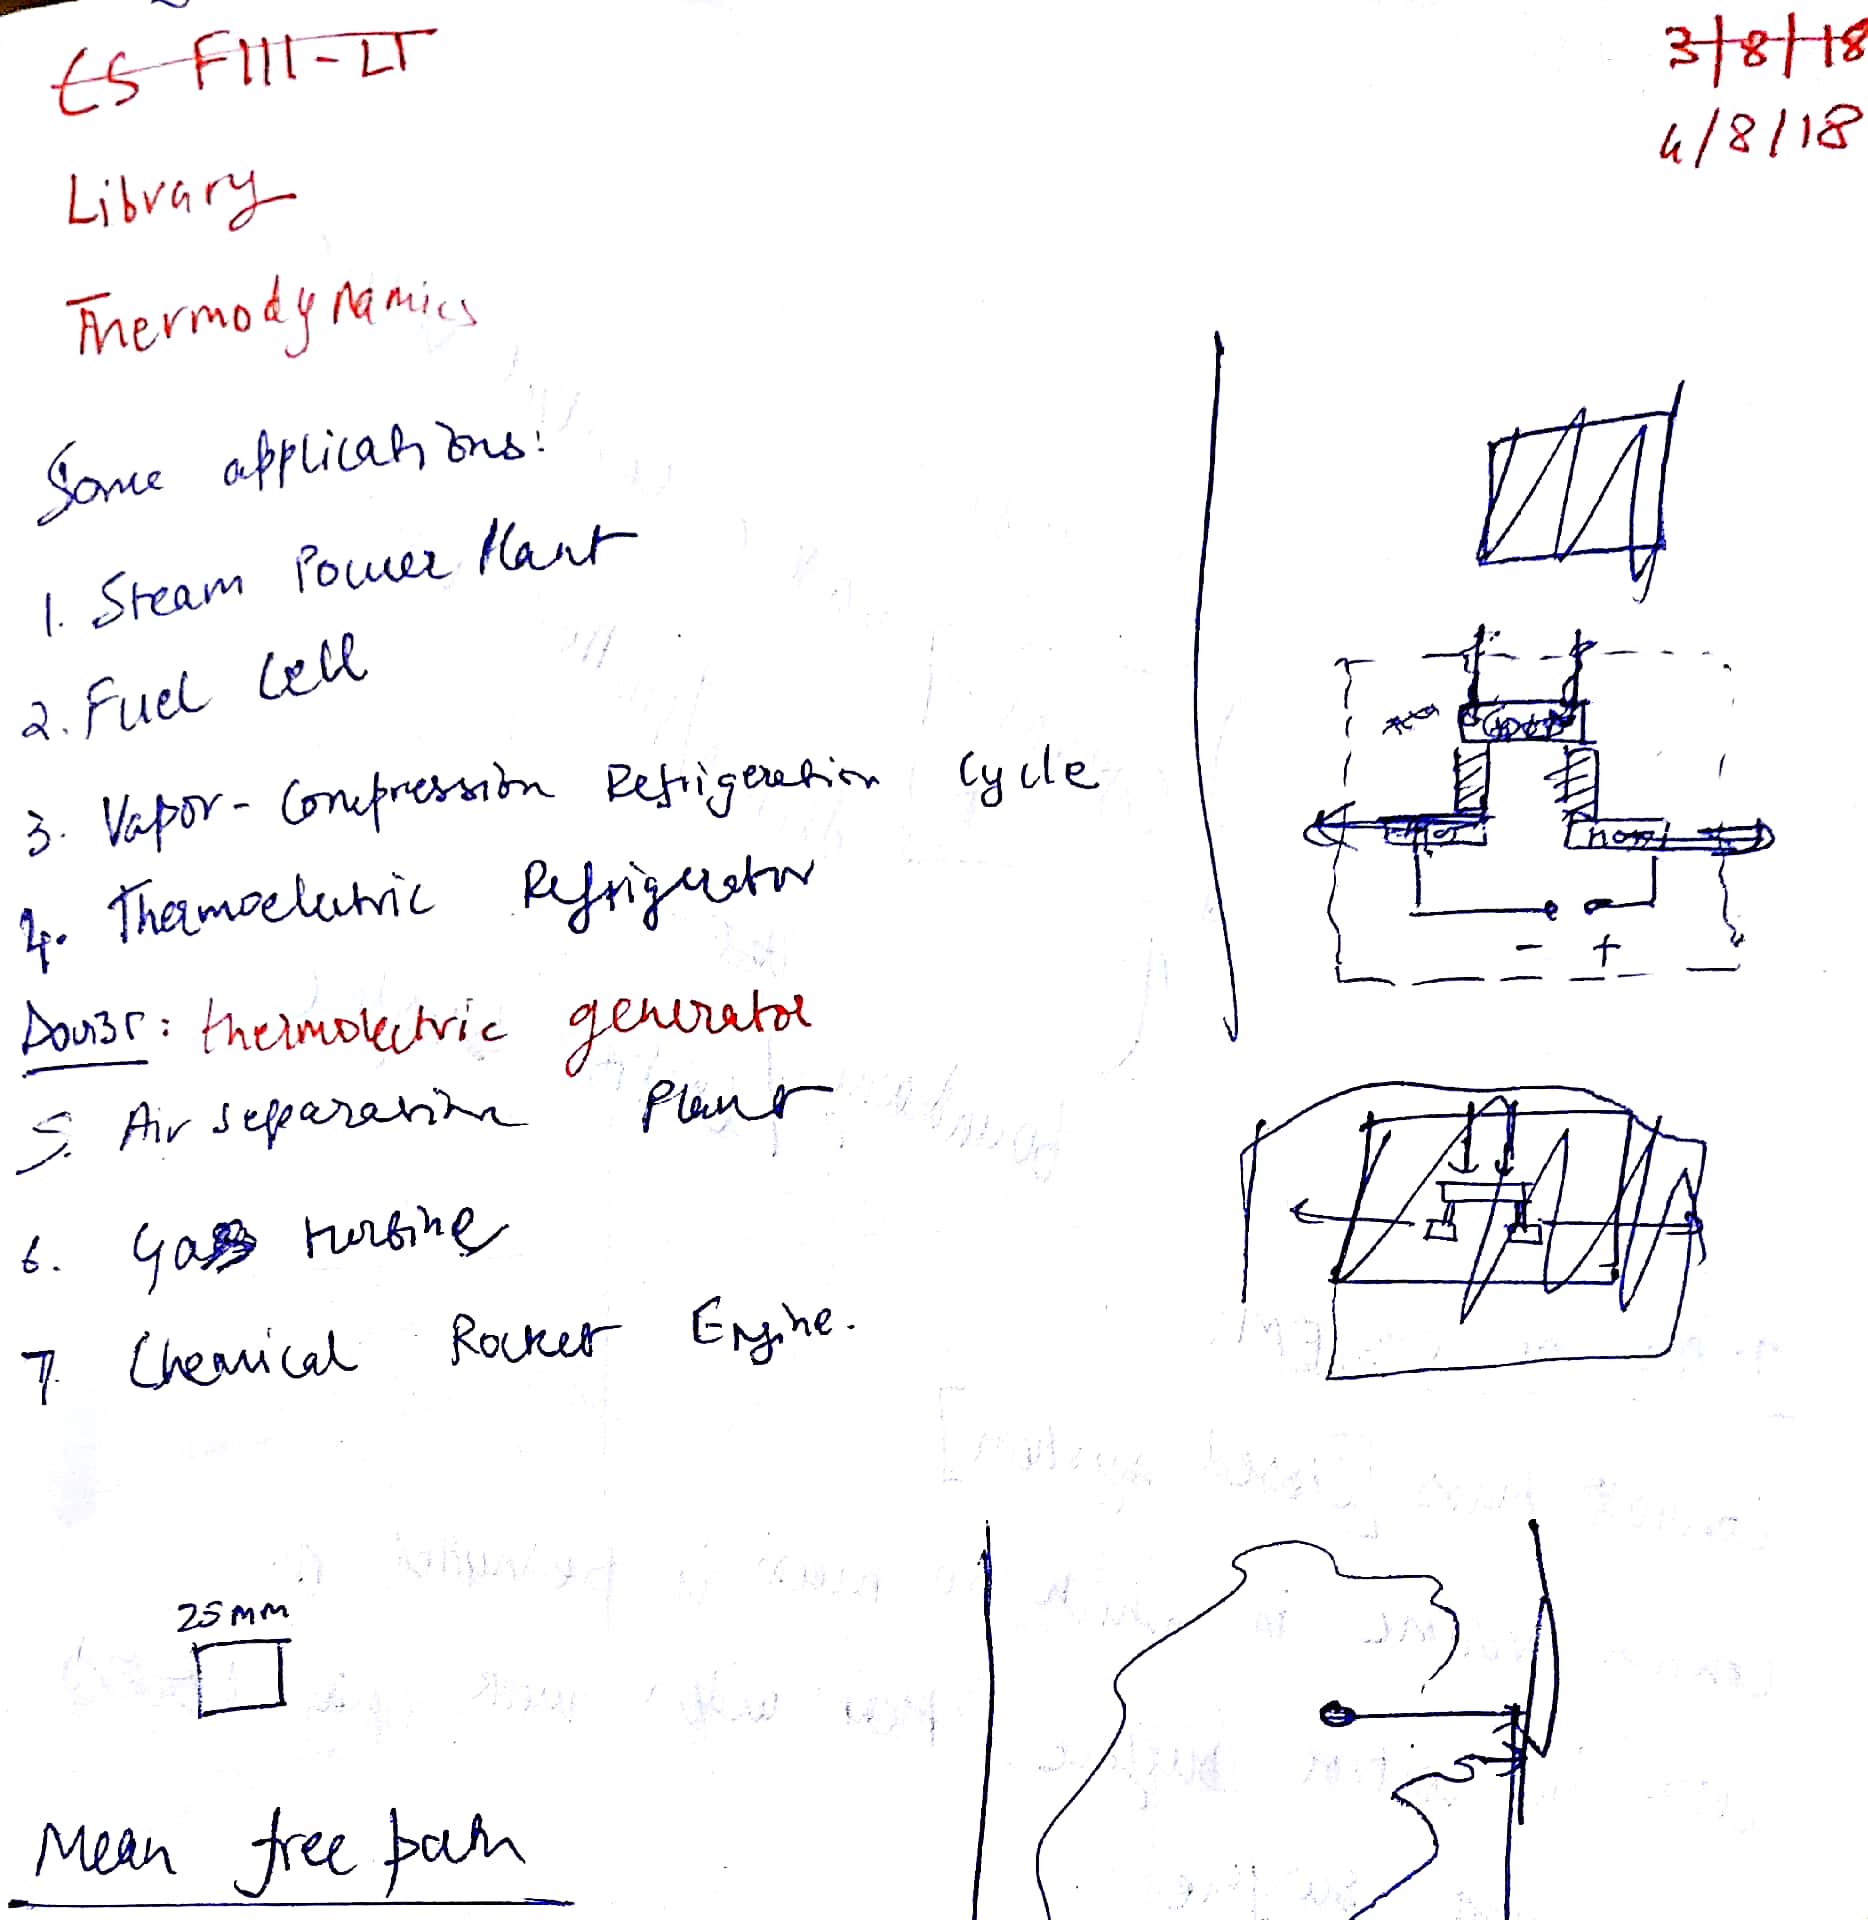 ES F111-LT
3/8/18
4/8/18
Library
Thermodynamics
Some applications:
1. Steam Power Plant
2. Fuel Cell
3. Vapor-Compression Refrigeration Cycle
4. Thermoelectric Refrigerator
Doubt: thermolectric generator
5. Air separation Plant
6. Gas turbine
7. Chemical Rocket Engine.
- +
25mm
Mean free path